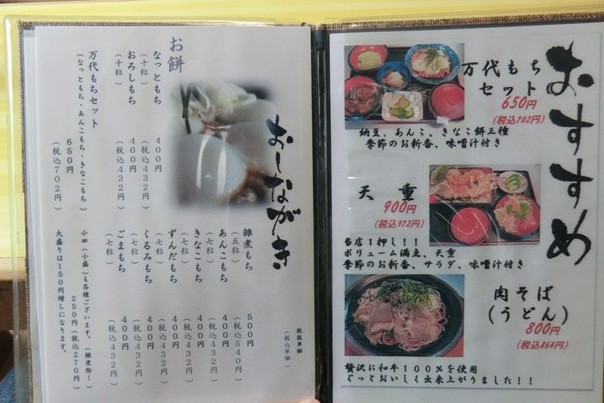 おしながき
お餅
税抜単価
(税込単価)
雑煮もち 500円
(五粒) (税込540円)
あんこもち 400円
(七粒) (税込432円)
きなこもち 400円
(七粒) (税込432円)
ずんだもち 400円
(七粒) (税込432円)
くるみもち 400円
(七粒) (税込432円)
ごまもち 400円
(七粒) (税込432円)
なっともち 400円
(十粒) (税込432円)
おろしもち 400円
(十粒) (税込432円)
万代もちセット 650円
(なっともち・あんこもち・きなこもち) (税込702円)
小皿(小盛)も各種ございます。(雑煮除く)
250円(税込270円)
大盛りは150円増しになります。
おすすめ
万代もち
セット
650円
(税込702円)
納豆、あんこ、きなこ餅三種
季節のお新香、味噌汁付き
天重
900円
(税込972円)
当店1押し!!
ボリューム満点、天重
季節のお新香、サラダ、味噌汁付き
肉そば
(うどん)
800円
(税込864円)
贅沢に和牛100%を使用
ぐっとおいしく出来上がりました!!